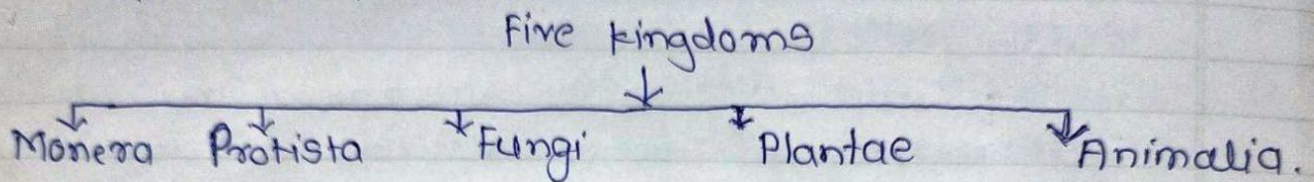 Five kingdoms
Monera Protista Fungi Plantae Animalia.